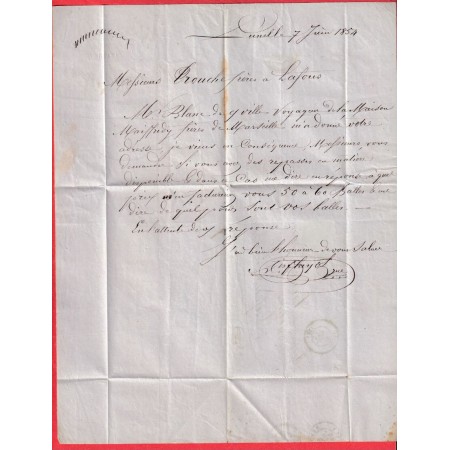 Lunille 7 Juin 1854
Messieurs Tronche frères à Lafous
Mr Blanc de ville Voyageur de la Maison
frères de Marseille m'a donné votre
adresse je viens en Conséquence Messieurs vous
demander Si vous avez des repasses en
disponible & dans le Cas me dire en réponse à quel
prix m'en factureriez vous 50 à 60 Balles & me
dire de quel poids sont vos balles
En l'attente de réponse
J'ai bien l'honneur de vous Saluer